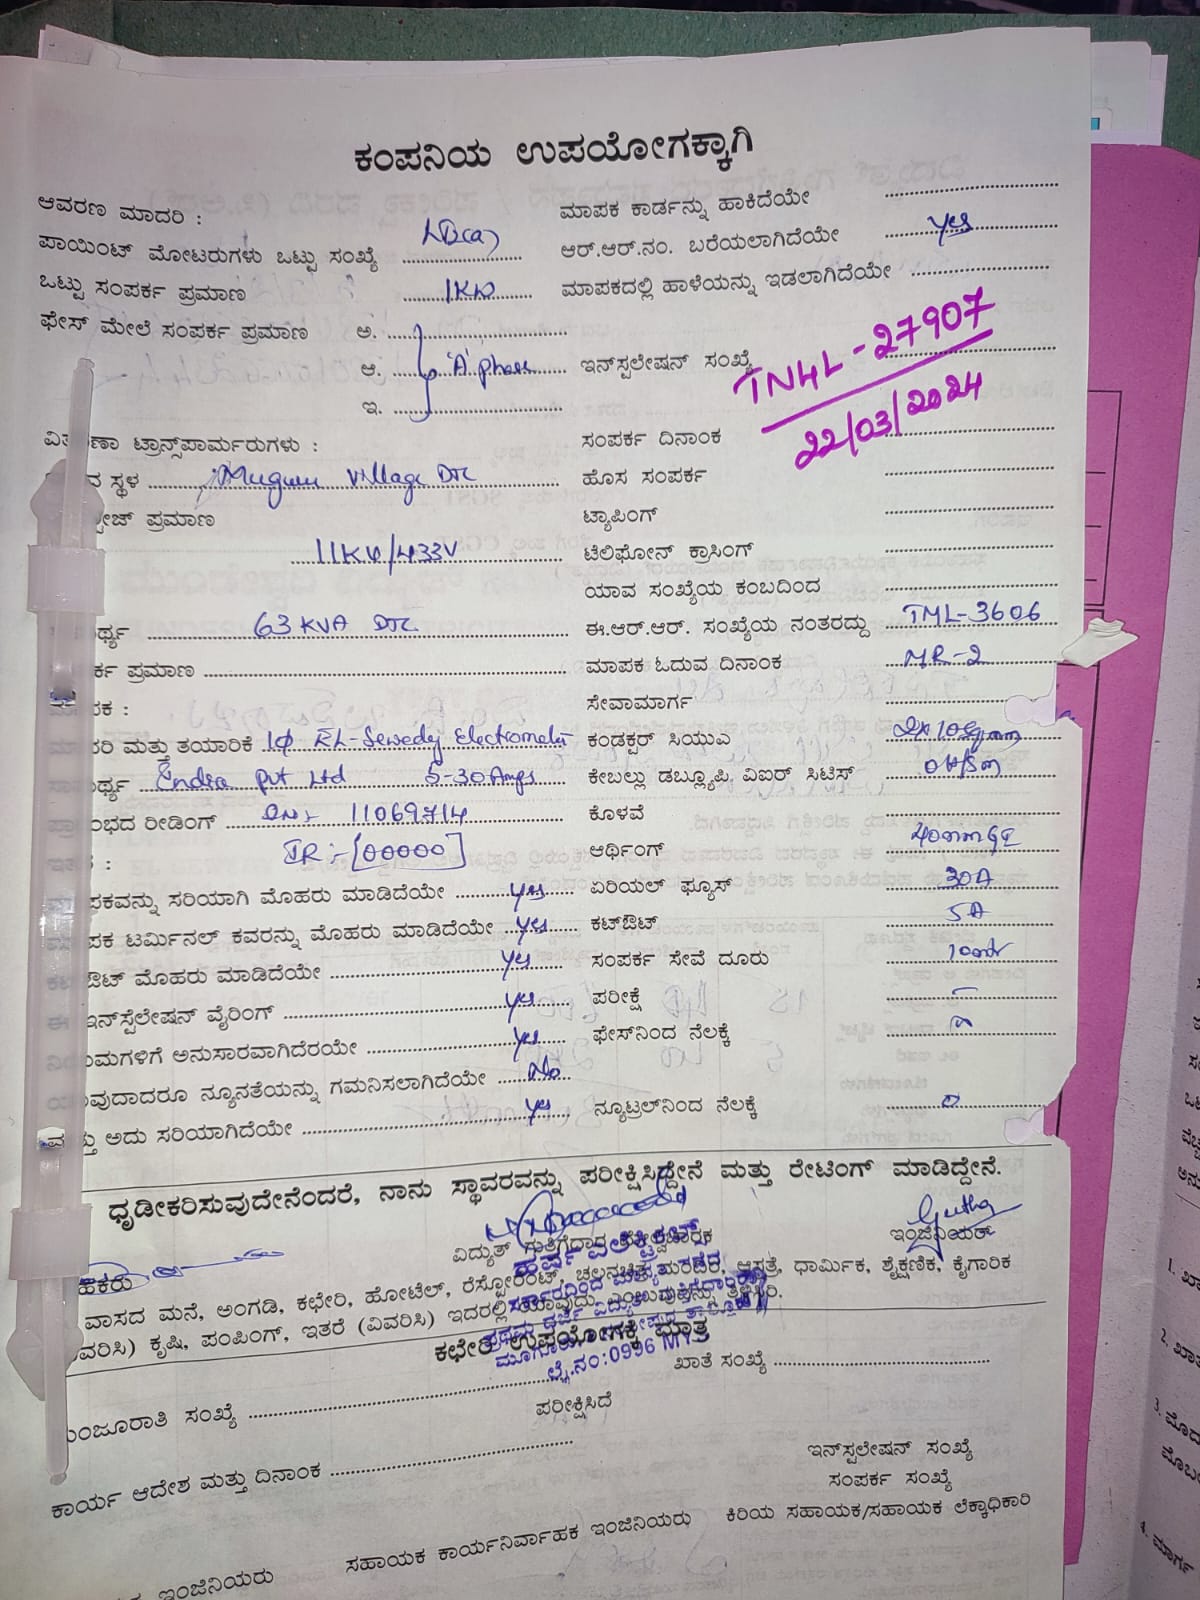 ಕಂಪನಿಯ ಉಪಯೋಗಕ್ಕಾಗಿ
ಆವರಣ ಮಾದರಿ : ಮಾಪಕ ಕಾರ್ಡನ್ನು ಹಾಕಿದೆಯೇ
ಪಾಯಿಂಟ್ ಮೋಟರುಗಳು ಒಟ್ಟು ಸಂಖ್ಯೆ ಆರ್.ಆರ್.ನಂ. ಬರೆಯಲಾಗಿದೆಯೇ yes
ಒಟ್ಟು ಸಂಪರ್ಕ ಪ್ರಮಾಣ 1KW ಮಾಪಕದಲ್ಲಿ ಹಾಳೆಯನ್ನು ಇಡಲಾಗಿದೆಯೇ
ಫೇಸ್ ಮೇಲೆ ಸಂಪರ್ಕ ಪ್ರಮಾಣ ಅ.
ಆ. 'A' phase ಇನ್‌ಸ್ಪಲೇಷನ್ ಸಂಖ್ಯೆ TN4L-27907
ಇ. 22/03/2024
ಟ್ರಾನ್ಸ್‌ಪಾರ್ಮರುಗಳು : ಸಂಪರ್ಕ ದಿನಾಂಕ
ಸ್ಥಳ Village DTC ಹೊಸ ಸಂಪರ್ಕ
ಪ್ರಮಾಣ ಟ್ಯಾಪಿಂಗ್
11KV/433V ಟೆಲಿಫೋನ್ ಕ್ರಾಸಿಂಗ್
ಯಾವ ಸಂಖ್ಯೆಯ ಕಂಬದಿಂದ
63 KVA DTC ಈ.ಆರ್.ಆರ್. ಸಂಖ್ಯೆಯ ನಂತರದ್ದು TML-3606
ಪ್ರಮಾಣ ಮಾಪಕ ಓದುವ ದಿನಾಂಕ MR-2
ಸೇವಾಮಾರ್ಗ
ಮತ್ತು ತಯಾರಿಕೆ 1φ EL-Sewedy Electrometer ಕಂಡಕ್ಟರ್ ಸಿಯುಎ
India Pvt Ltd 5-30Amps ಕೇಬಲ್ಲು ಡಬ್ಲ್ಯೂಪಿ ವಿಐಆರ್ ಸಿಟಿಸ್
ರೀಡಿಂಗ್ 11069714 ಕೊಳವೆ
IR:-[00000] ಆರ್ಥಿಂಗ್ 40mmGI
ಸರಿಯಾಗಿ ಮೊಹರು ಮಾಡಿದೆಯೇ yes ಏರಿಯಲ್ ಫ್ಯೂಸ್ 30A
ಟರ್ಮಿನಲ್ ಕವರನ್ನು ಮೊಹರು ಮಾಡಿದೆಯೇ yes ಕಟ್‌ಔಟ್ 5A
ಮೊಹರು ಮಾಡಿದೆಯೇ yes ಸಂಪರ್ಕ ಸೇವೆ ದೂರು 10mtr
ಇನ್‌ಸ್ಪೆಲೇಷನ್ ವೈರಿಂಗ್ yes ಪರೀಕ್ಷೆ –
ಅನುಸಾರವಾಗಿದೆರಯೇ yes ಫೇಸ್‌ನಿಂದ ನೆಲಕ್ಕೆ
ನ್ಯೂನತೆಯನ್ನು ಗಮನಿಸಲಾಗಿದೆಯೇ No
ಅದು ಸರಿಯಾಗಿದೆಯೇ yes ನ್ಯೂಟ್ರಲ್‌ನಿಂದ ನೆಲಕ್ಕೆ 0
ಧೃಡೀಕರಿಸುವುದೇನೆಂದರೆ, ನಾನು ಸ್ಥಾವರವನ್ನು ಪರೀಕ್ಷಿಸಿದ್ದೇನೆ ಮತ್ತು ರೇಟಿಂಗ್ ಮಾಡಿದ್ದೇನೆ.
ವಿದ್ಯುತ್ ಗುತ್ತಿಗೆದಾರ ಮೇಲ್ವಿಚಾರಕ ಇಂಜಿನಿಯರ್
ವಾಸದ ಮನೆ, ಅಂಗಡಿ, ಕಛೇರಿ, ಹೋಟೆಲ್, ರೆಸ್ಟೋರೆಂಟ್, ಚಲನಚಿತ್ರ ಮಂದಿರ, ಆಸ್ಪತ್ರೆ, ಧಾರ್ಮಿಕ, ಶೈಕ್ಷಣಿಕ, ಕೈಗಾರಿಕ
ಕೃಷಿ, ಪಂಪಿಂಗ್, ಇತರೆ (ವಿವರಿಸಿ) ಇದರಲ್ಲಿ ಯಾವುದು ಎಂಬುವುದನ್ನು ತಿಳಿಸಿರಿ.
ಕಛೇರಿ ಉಪಯೋಗಕ್ಕೆ ಮಾತ್ರ
ಲೈ.ನಂ:0996
ಸಂಖ್ಯೆ ಖಾತೆ ಸಂಖ್ಯೆ
ಪರೀಕ್ಷಿಸಿದೆ
ಕಾರ್ಯ ಆದೇಶ ಮತ್ತು ದಿನಾಂಕ ಇನ್‌ಸ್ಪಲೇಷನ್ ಸಂಖ್ಯೆ
ಸಂಪರ್ಕ ಸಂಖ್ಯೆ
ಇಂಜಿನಿಯರು ಸಹಾಯಕ ಕಾರ್ಯನಿರ್ವಾಹಕ ಇಂಜಿನಿಯರು ಕಿರಿಯ ಸಹಾಯಕ/ಸಹಾಯಕ ಲೆಕ್ಕಾಧಿಕಾರಿ